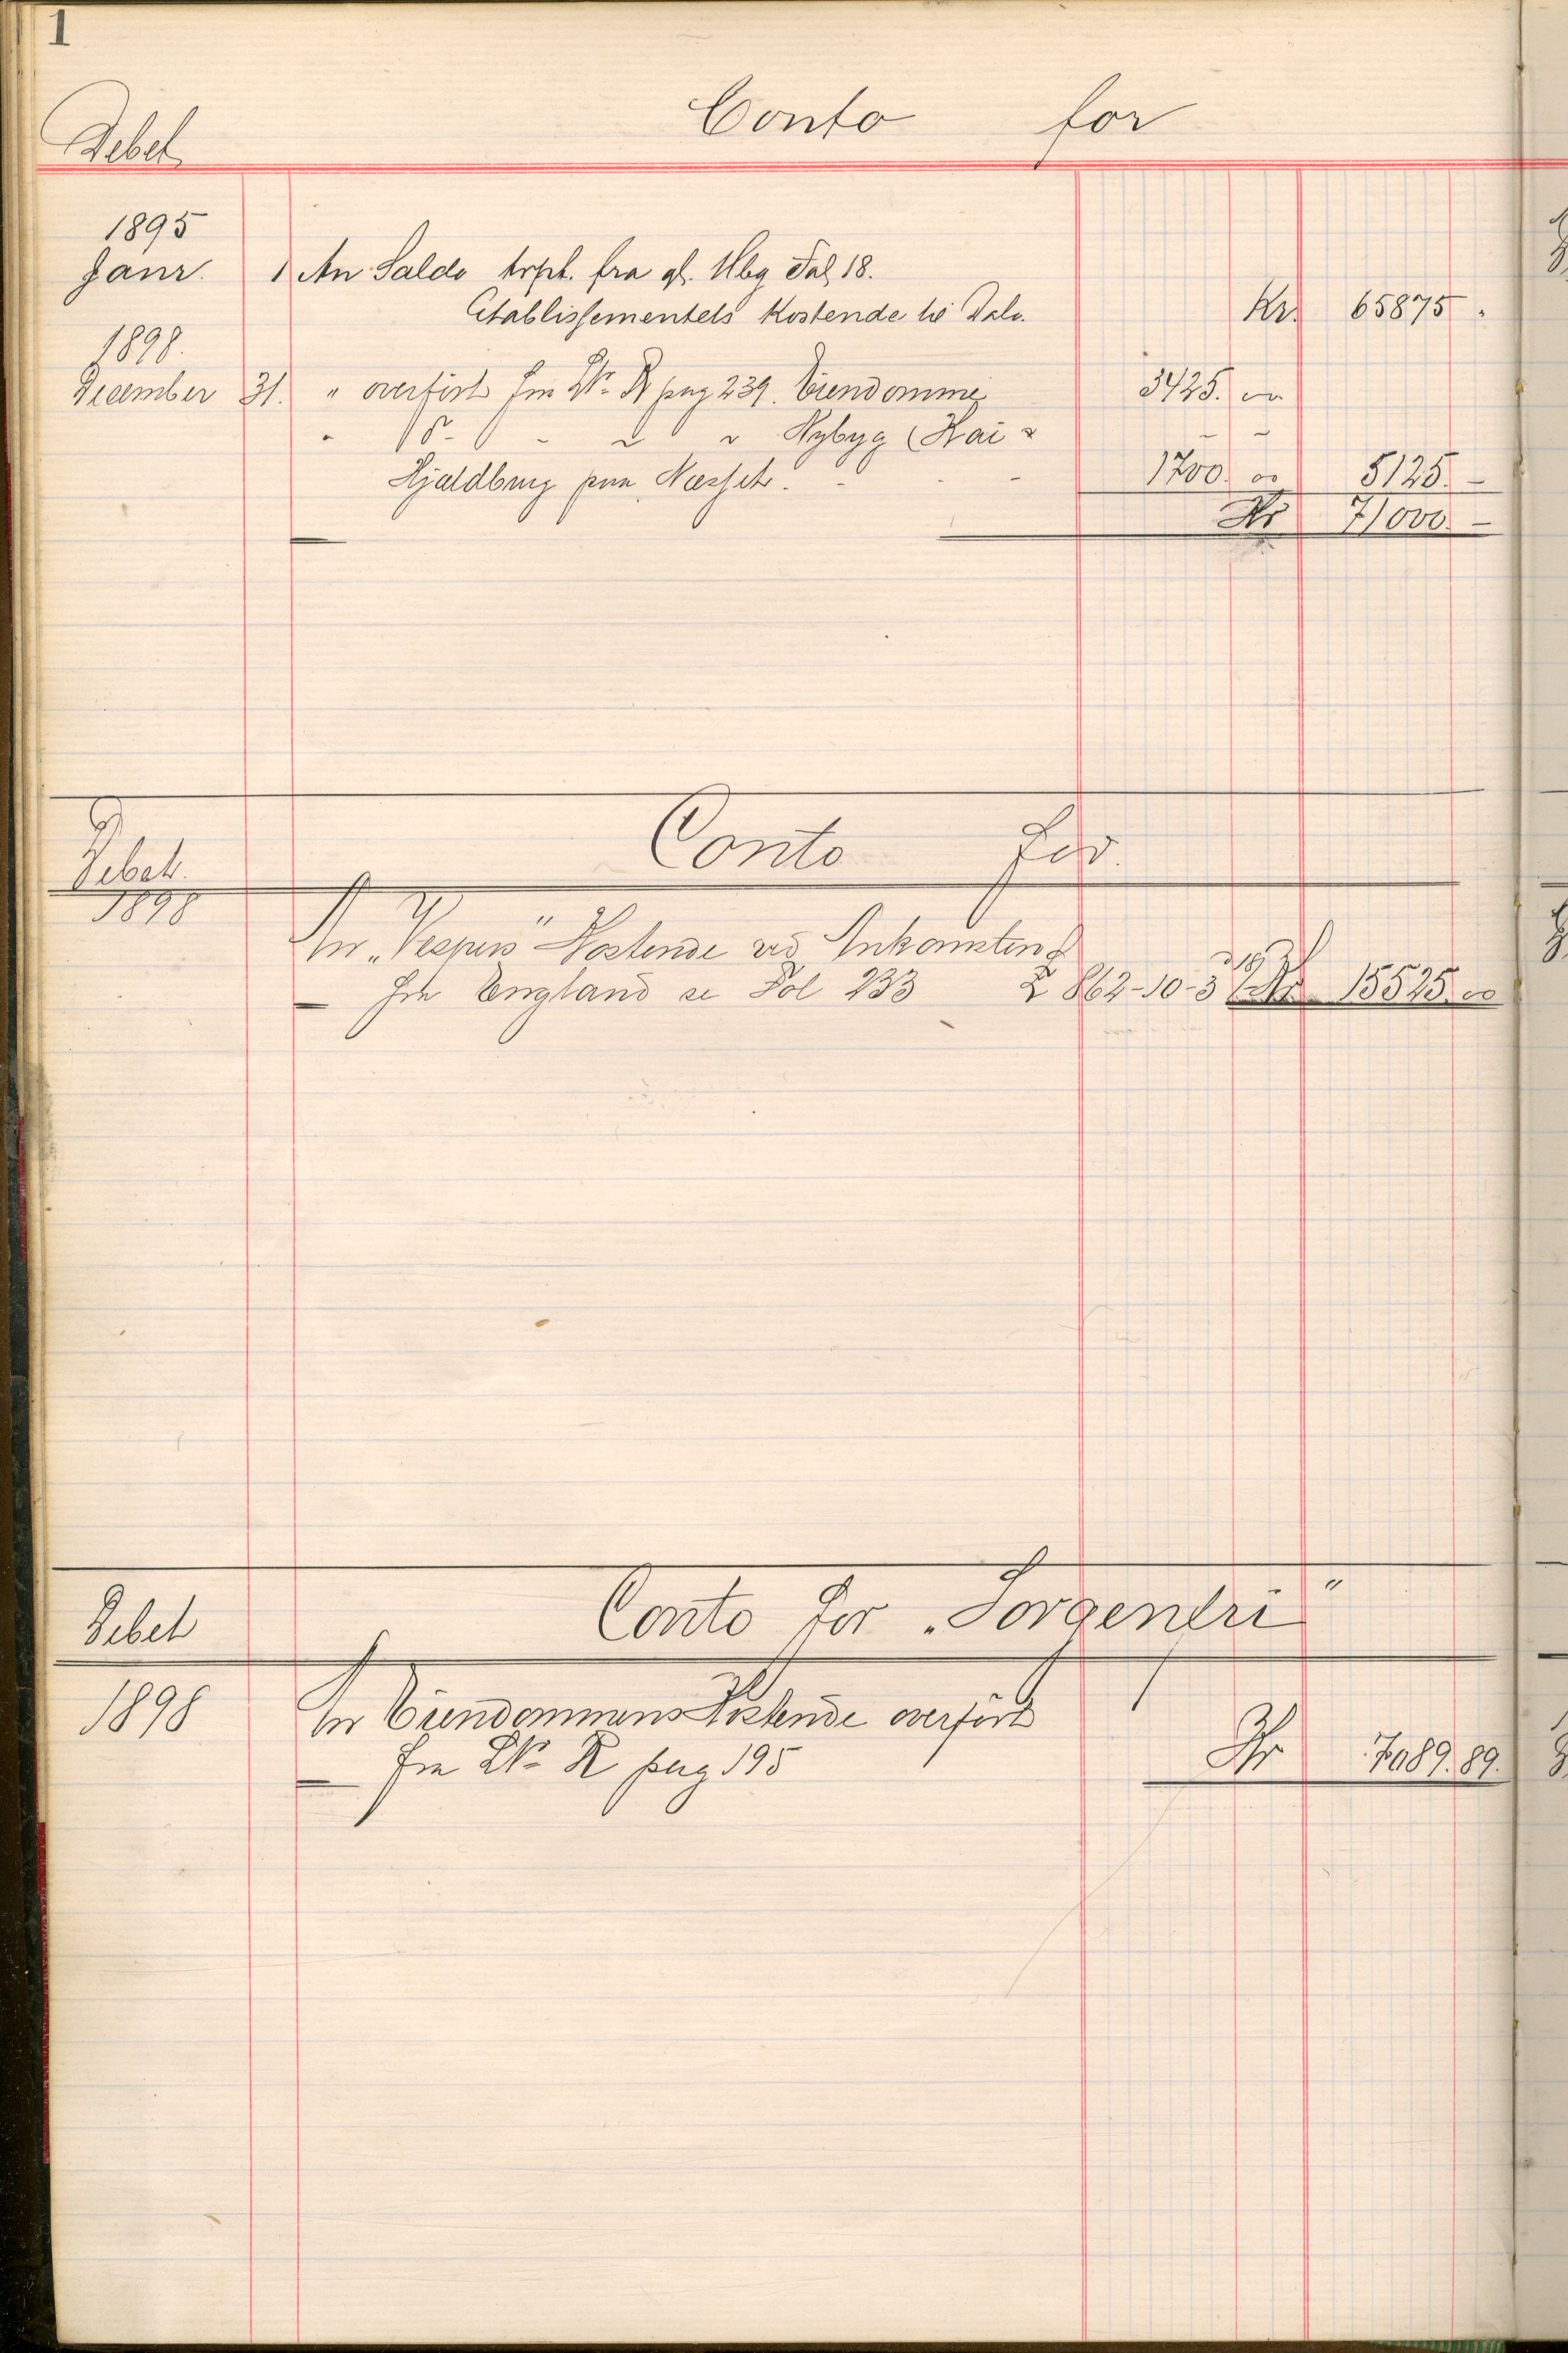 1
Debet Conto for
1895
Janr. 1 An Saldo trpt. fra gl. Hbg Fol 18.
Etablissementets Kostende til Dato. Kr. 65875 "
1898.
December 31. " overfört fra Lit. R pag 239. Eiendomme 3425. 00
" " Nybyg (Kai &
Hjeldbrug paa Næsset. 1700. 00 5125. —
Kr 71000. —
Debet. Conto for
1898
An „Vespers" Kostende ved Ankomsten
fra England se Fol 233 £ 862-10-3 Kr 15525. 00
Debet Conto for „Sorgenfri"
1898 An Eiendommens Kostende overfört
fra Lit. R pag 195 Kr 7089. 89.